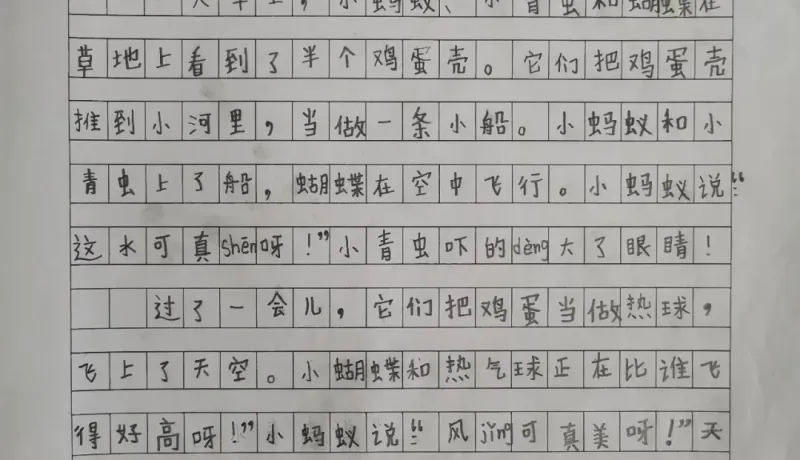 小蚂蚁、小青虫和蝴蝶在
草地上看到了半个鸡蛋壳。它们把鸡蛋壳
推到小河里，当做一条小船。小蚂蚁和小
青虫上了船，蝴蝶在空中飞行。小蚂蚁说：“
这水可真shēn呀！”小青虫吓的dèng大了眼睛！
过了一会儿，它们把鸡蛋当做热球，
飞上了天空。小蝴蝶和热气球正在比谁飞
得好高呀！”小蚂蚁说：“风jǐng可真美呀！”天